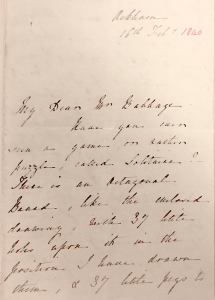 Ockham
16th Feby 1840
My Dear Mr Babbage.
Have you ever
seen a game, or rather
puzzle, called Solitaire?
There is an octagonal
Board, like the enclosed
drawing, with 37 little
holes upon it in the
position I have drawn
them, & 37 little pegs to